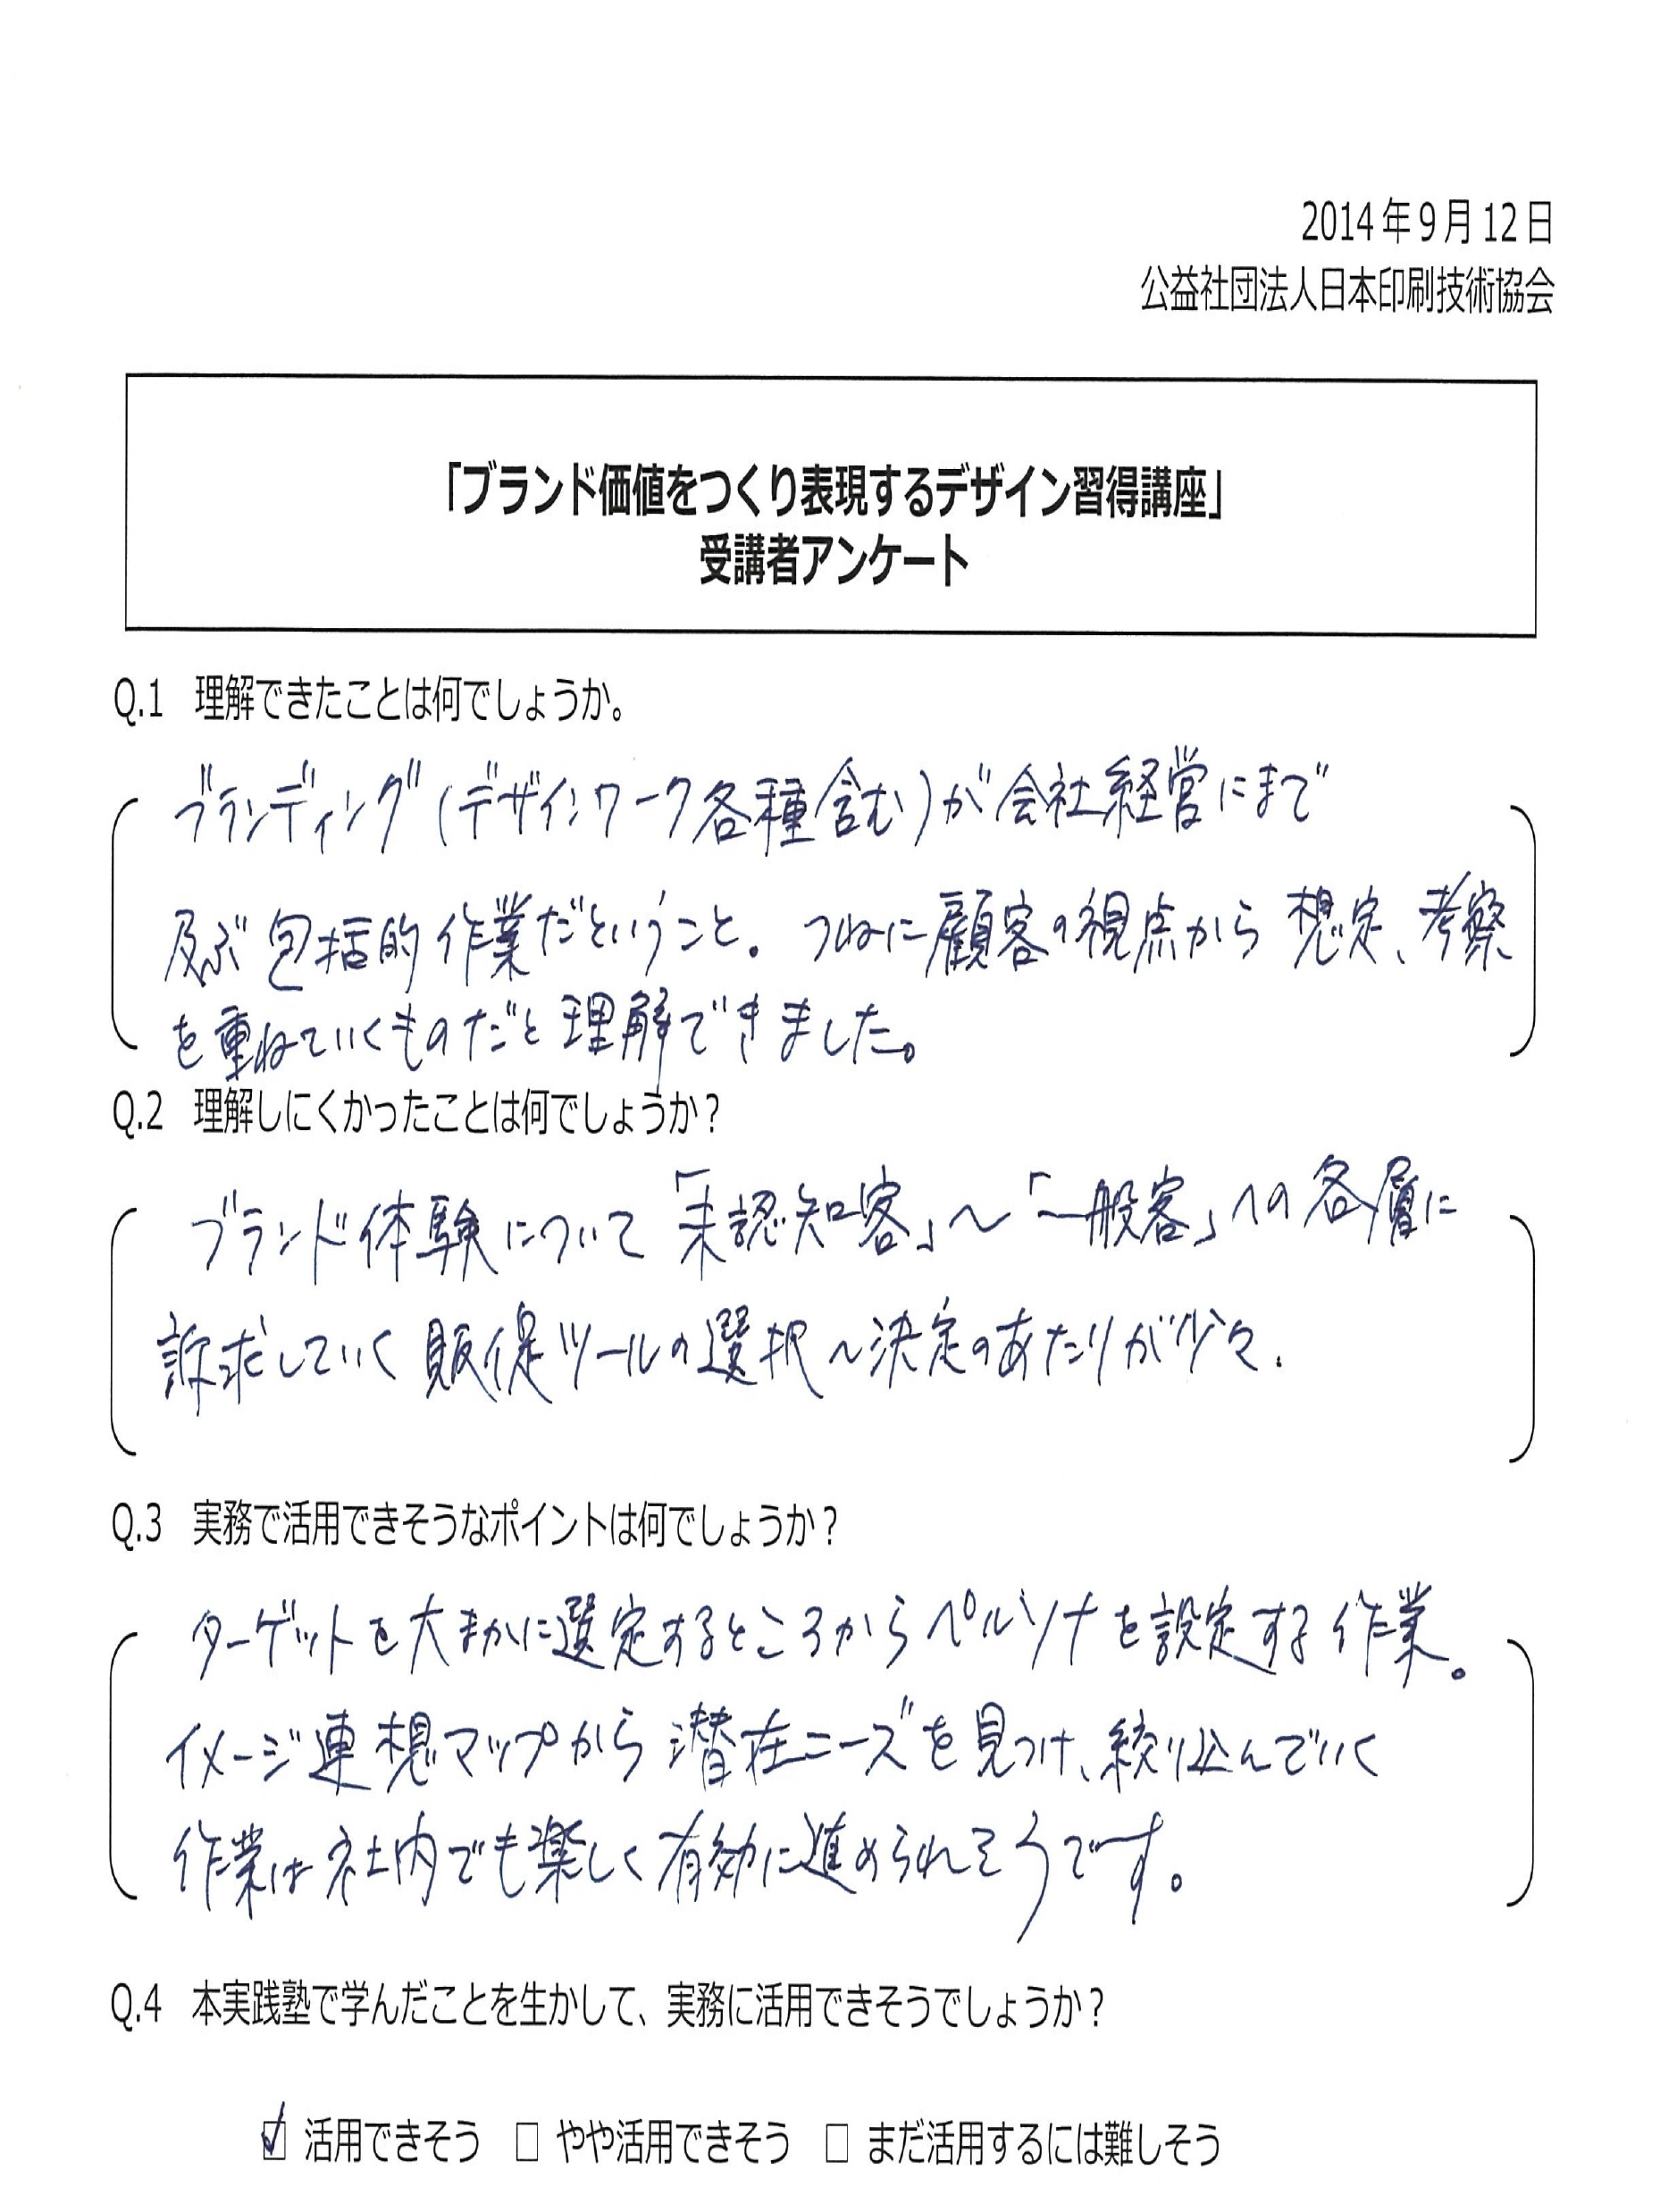 2014年9月12日
公益社団法人日本印刷技術協会
「ブランド価値をつくり表現するデザイン習得講座」
受講者アンケート
Q.1 理解できたことは何でしょうか。
ブランディング(デザインワーク各種含む)が会社経営にまで
及ぶ包括的作業だということ。つねに顧客の視点から想定、考察
を重ねていくものだと理解できました。
Q.2 理解しにくかったことは何でしょうか？
ブランド体験について「未認知客」〜「一般客」への各層に
訴求していく販促ツールの選択〜決定のあたりが少々.
Q.3 実務で活用できそうなポイントは何でしょうか？
ターゲットを大まかに選定するところからペルソナを設定する作業。
イメージ連想マップから潜在ニーズを見つけ、絞り込んでいく
作業は社内でも楽しく有効に進められそうです。
Q.4 本実践塾で学んだことを生かして、実務に活用できそうでしょうか？
☑ 活用できそう □ やや活用できそう □ まだ活用するには難しそう